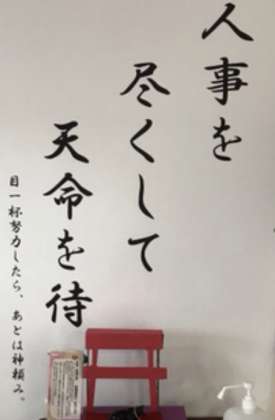 人事を
尽くして
天命を待
目一杯努力したら、あとは神頼み。